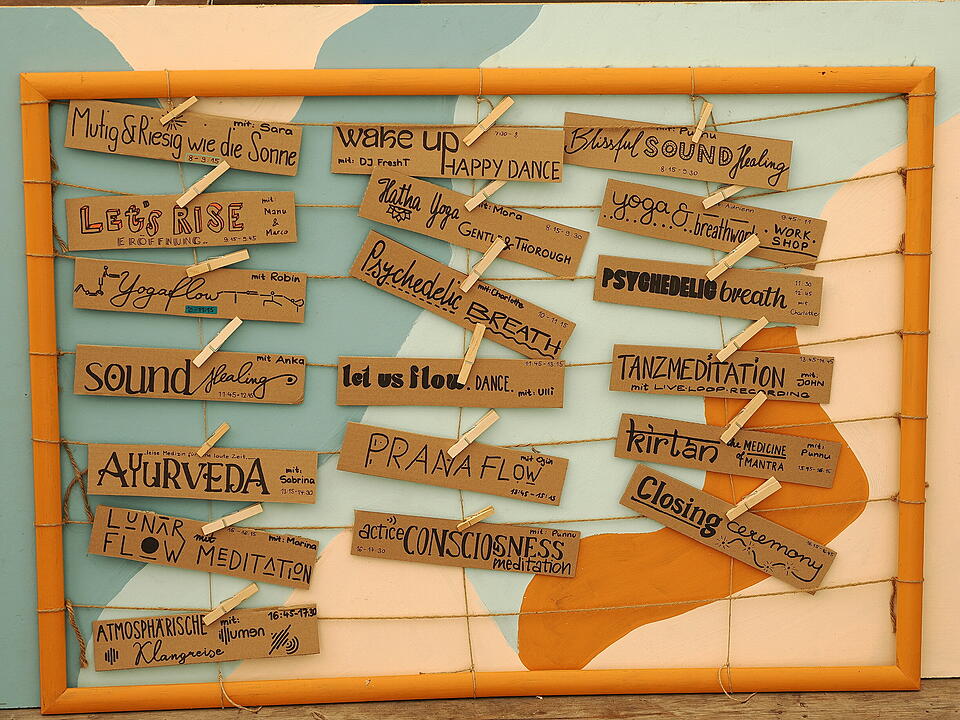 Mutig & Riesig wie die Sonne
mit: Sara
8 - 9.15
LET'S RISE
ERÖFFNUNG..
mit: Manu & Marco
9.15 - 9.45
Yogaflow
mit Robin
10 - 11.15
sound Healing
mit Anka
11:45 - 12.45
leise Medizin für die laute Zeit....
AYURVEDA
mit: Sabrina
13.15 - 14.30
LUNAR FLOW mit MEDITATION
mit: Marina
ATMOSPHÄRISCHE Klangreise
mit: illumen
16:45 - 17.30
wake up HAPPY DANCE
mit: DJ FreshT
Hatha Yoga
mit: Mora
GENTLE & THOROUGH
8.15 - 9.30
Psychedelic BREATH
mit: Charlotte
10 - 11.15
let us flow. DANCE.
mit: Ulli
11:45 - 13.15
PRANA FLOW
13:45 - 15:15
actice CONSCIOSNESS meditation
mit: Punnu
16 - 17.30
Blissful SOUND Healing
mit: Punnu
8.15 - 9.30
yoga & breathwork
WORK SHOP
9:45 - 11
PSYCHEDELIC breath
11:30
12:45
mit Charlotte
TANZMEDITATION
mit: JOHN
mit LIVE-LOOP-RECORDING
13:45 - 14:45
kirtan the MEDICINE of MANTRA
mit: Punnu
Closing ceremony